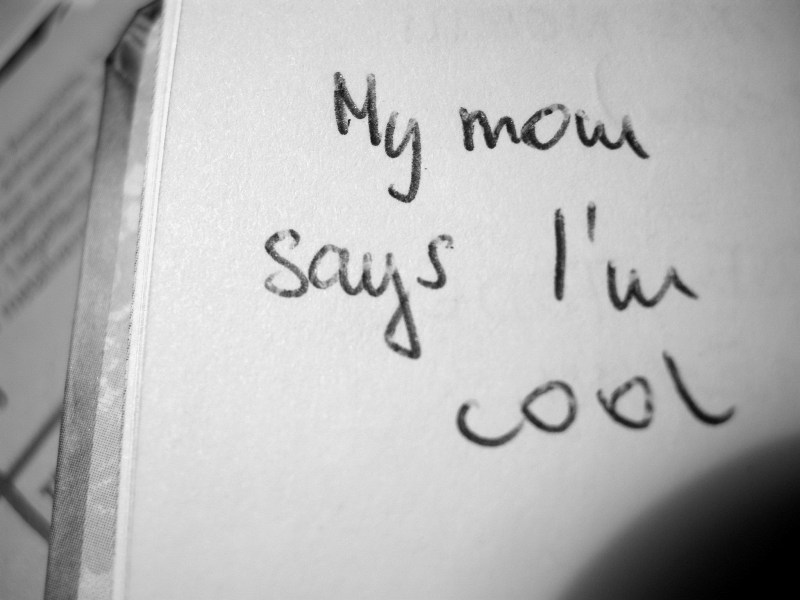 My mom
says I'm
cool